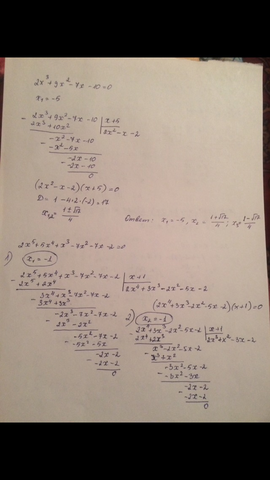 2x³+9x²-7x-10=0
x₁=-5
2x³+9x²-7x-10 | x+5
2x³+10x² | 2x²-x-2
-x²-7x-10
-x²-5x
-2x-10
-2x-10
0
(2x²-x-2)(x+5)=0
D=1-4·2·(-2)=17
x₂,₃=(1±√17)/4
Ответ: x₁=-5, x₂=(1+√17)/4; x₃=(1-√17)/4
2x⁵+5x⁴+x³-7x²-7x-2=0
1) x₁=-1
2x⁵+5x⁴+x³-7x²-7x-2 | x+1
2x⁵+2x⁴ | 2x⁴+3x³-2x²-5x-2
3x⁴+x³-7x²-7x-2
3x⁴+3x³
-2x³-7x²-7x-2
-2x³-2x²
-5x²-7x-2
-5x²-5x
-2x-2
-2x-2
0
(2x⁴+3x³-2x²-5x-2)(x+1)=0
2) x₂=-1
2x⁴+3x³-2x²-5x-2 | x+1
2x⁴+2x³ | 2x³+x²-3x-2
x³-2x²-5x-2
x³+x²
-3x²-5x-2
-3x²-3x
-2x-2
-2x-2
0